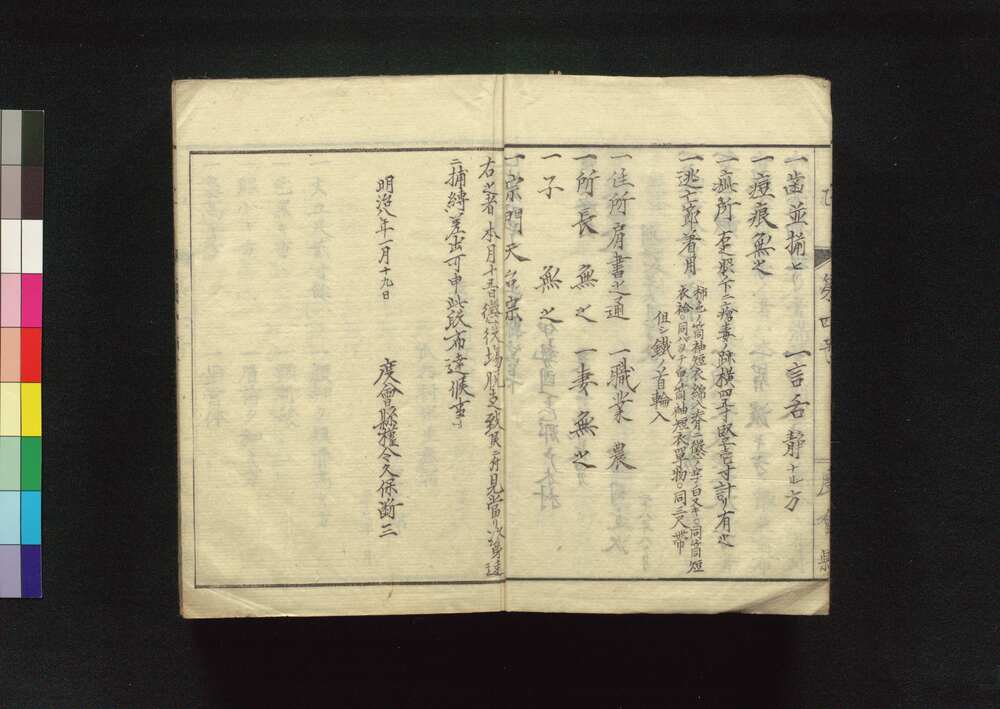 一歯並揃ヒ　一言舌静ナル方
一痘痕無之
一疵所　右之股下ニ瘡毒ノ跡横四寸竪壱寸計リ有之
一逃亡節着用　柿色ノ筒袖短衣綿入脊ニ懲ノ字ノ白ヌキ○同筒短
衣袷○同
白筒袖短衣単物○同三尺帯
但シ鉄ノ首輪入
一住所肩書之通　一職業　農
一所長　無之　一妻　無之
一子　無之
一宗門天台宗
右之者本月十五日懲役場脱走致候ニ付見當リ次第速
ニ捕縛差出可申此段布達候事
明治八年一月十九日
度會縣権令久保断三
第四号
度會縣